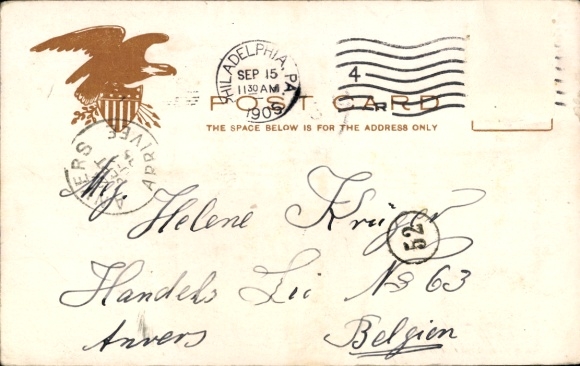 PHILADELPHIA, PA.
SEP 15
11 30 AM
1905
4
R
POST CARD
THE SPACE BELOW IS FOR THE ADDRESS ONLY
ANVERS
ARRIVEE
Helene Krüger
52
Handels Lei No 63
Anvers Belgien